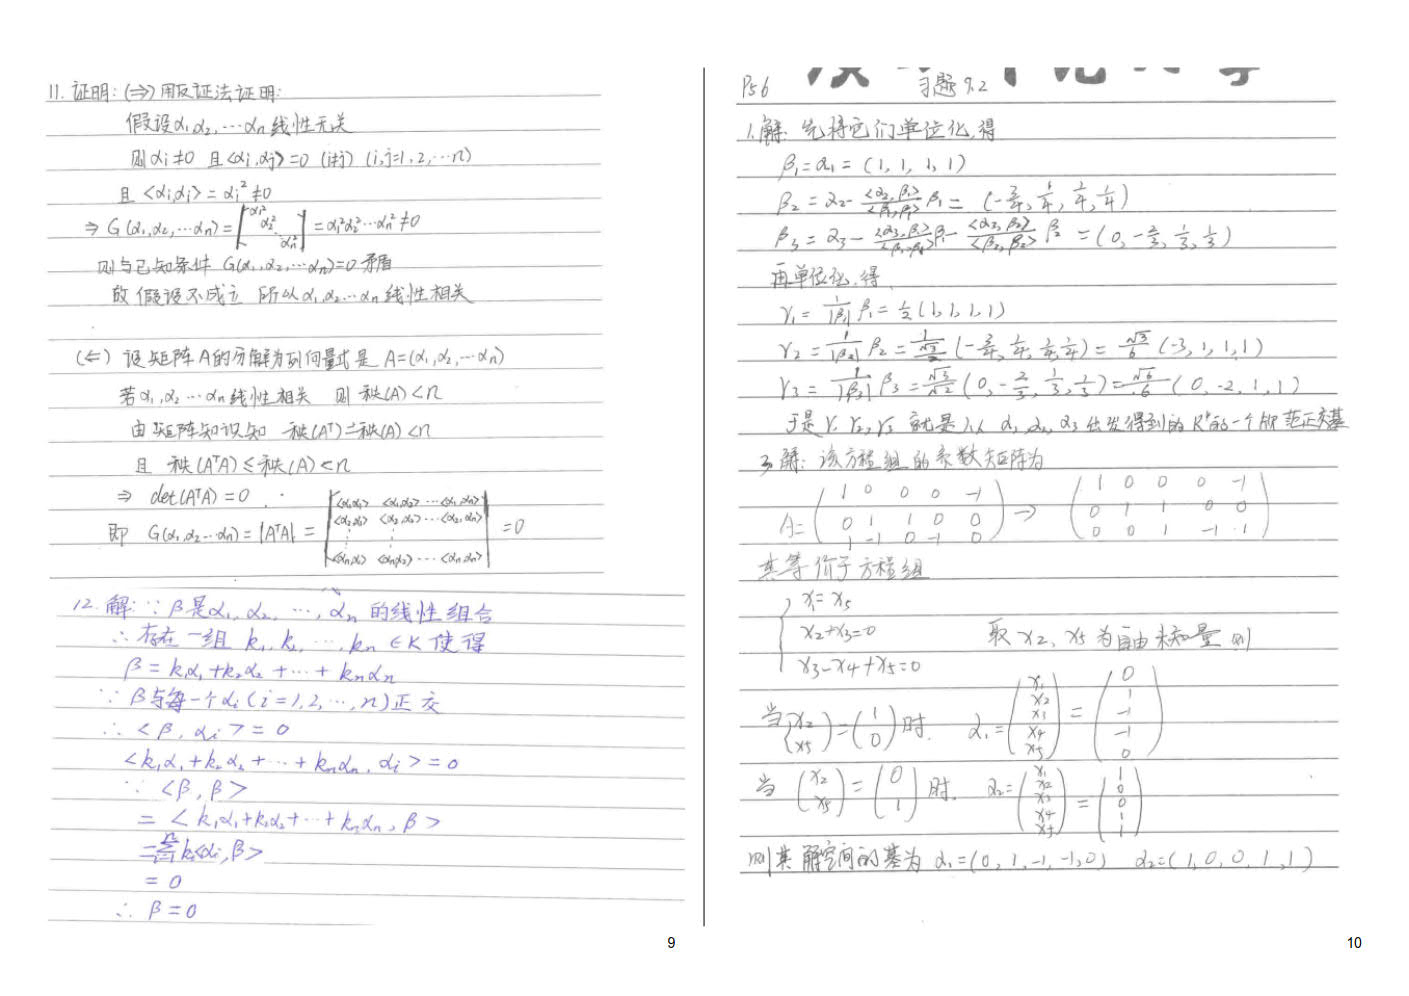 11. 证明: (⇒) 用反证法证明:
假设α₁,α₂,…αn线性无关
则αi≠0 且<αi,αj>=0 (i≠j) (i,j=1,2,…n)
且 <αi,αi> = αi²≠0
⇒ G(α₁,α₂,…αn)=|α₁² α₂² ⋱ αn²|=α₁²α₂²…αn²≠0
则与已知条件 G(α₁,α₂,…αn)=0 矛盾
故 假设不成立 所以α₁,α₂…αn 线性相关
(⇐) 设矩阵A的分解为列向量式是 A=(α₁,α₂,…αn)
若α₁,α₂…αn线性相关 则 秩(A)<n
由矩阵知识知 秩(Aᵀ)=秩(A)<n
且 秩(AᵀA)≤秩(A)<n
⇒ det(AᵀA)=0
即 G(α₁,α₂…αn)=|AᵀA| = |<α₁,α₁> <α₁,α₂> …<α₁,αn>
<α₂,α₁> <α₂,α₂>…<α₂,αn>
⋮ ⋮
<αn,α₁> <αn,α₂>…<αn,αn>| =0
12. 解: ∵ β是α₁, α₂, …, αn 的线性组合
∴ 存在一组 k₁, k₂, …, kn ∈K 使得
β = k₁α₁+k₂α₂ +…+ knαn
∵ β与每一个αi (i=1,2,…,n)正交
∴ <β, αi> = 0
<k₁α₁+k₂α₂+…+knαn, αi> =0
∵ <β, β>
= <k₁α₁+k₂α₂+…+knαn, β>
=Σki<αi,β>
= 0
∴ β=0
9
P56 习题9.2
1.解: 先将它们单位化,得
β₁=α₁= (1, 1, 1, 1)
β₂ = α₂- <α₂,β₁>/<β₁,β₁> β₁= (-3/4, 1/4, 1/4, 1/4)
β₃ = α₃- <α₃,β₁>/<β₁,β₁> β₁- <α₃,β₂>/<β₂,β₂> β₂ =(0,-2/3, 1/3, 1/3)
再单位化,得
γ₁= 1/|β₁| β₁= 1/2(1,1,1,1)
γ₂= 1/|β₂| β₂ = (-3/4, 1/4, 1/4, 1/4) = √3/6 (-3, 1, 1, 1)
γ₃= 1/|β₃| β₃ = √3/√2 (0,-2/3, 1/3, 1/3)= √6/6 (0,-2, 1, 1)
于是 γ₁ γ₂, γ₃ 就是从 α₁, α₂, α₃ 出发得到的 R⁴的一个标准正交基
3.解: 该方程组的系数矩阵为
A=(1 0 0 0 -1
0 1 1 0 0
1 -1 0 -1 0) → (1 0 0 0 -1
0 1 1 0 0
0 0 1 -1 1)
其等价于方程组
{x₁=x₅
x₂+x₃=0 取 x₂, x₅ 为自由未知量 则
x₃-x₄+x₅=0
当(x₂ x₅)=(1 0)时, α₁=(x₁ x₂ x₃ x₄ x₅)=(0 1 -1 -1 0)
当 (x₂ x₅)=(0 1)时, α₂=(x₁ x₂ x₃ x₄ x₅)=(1 0 0 1 1)
则其解空间的基为 α₁=(0, 1, -1, -1, 0) α₂=(1, 0, 0, 1, 1)
10